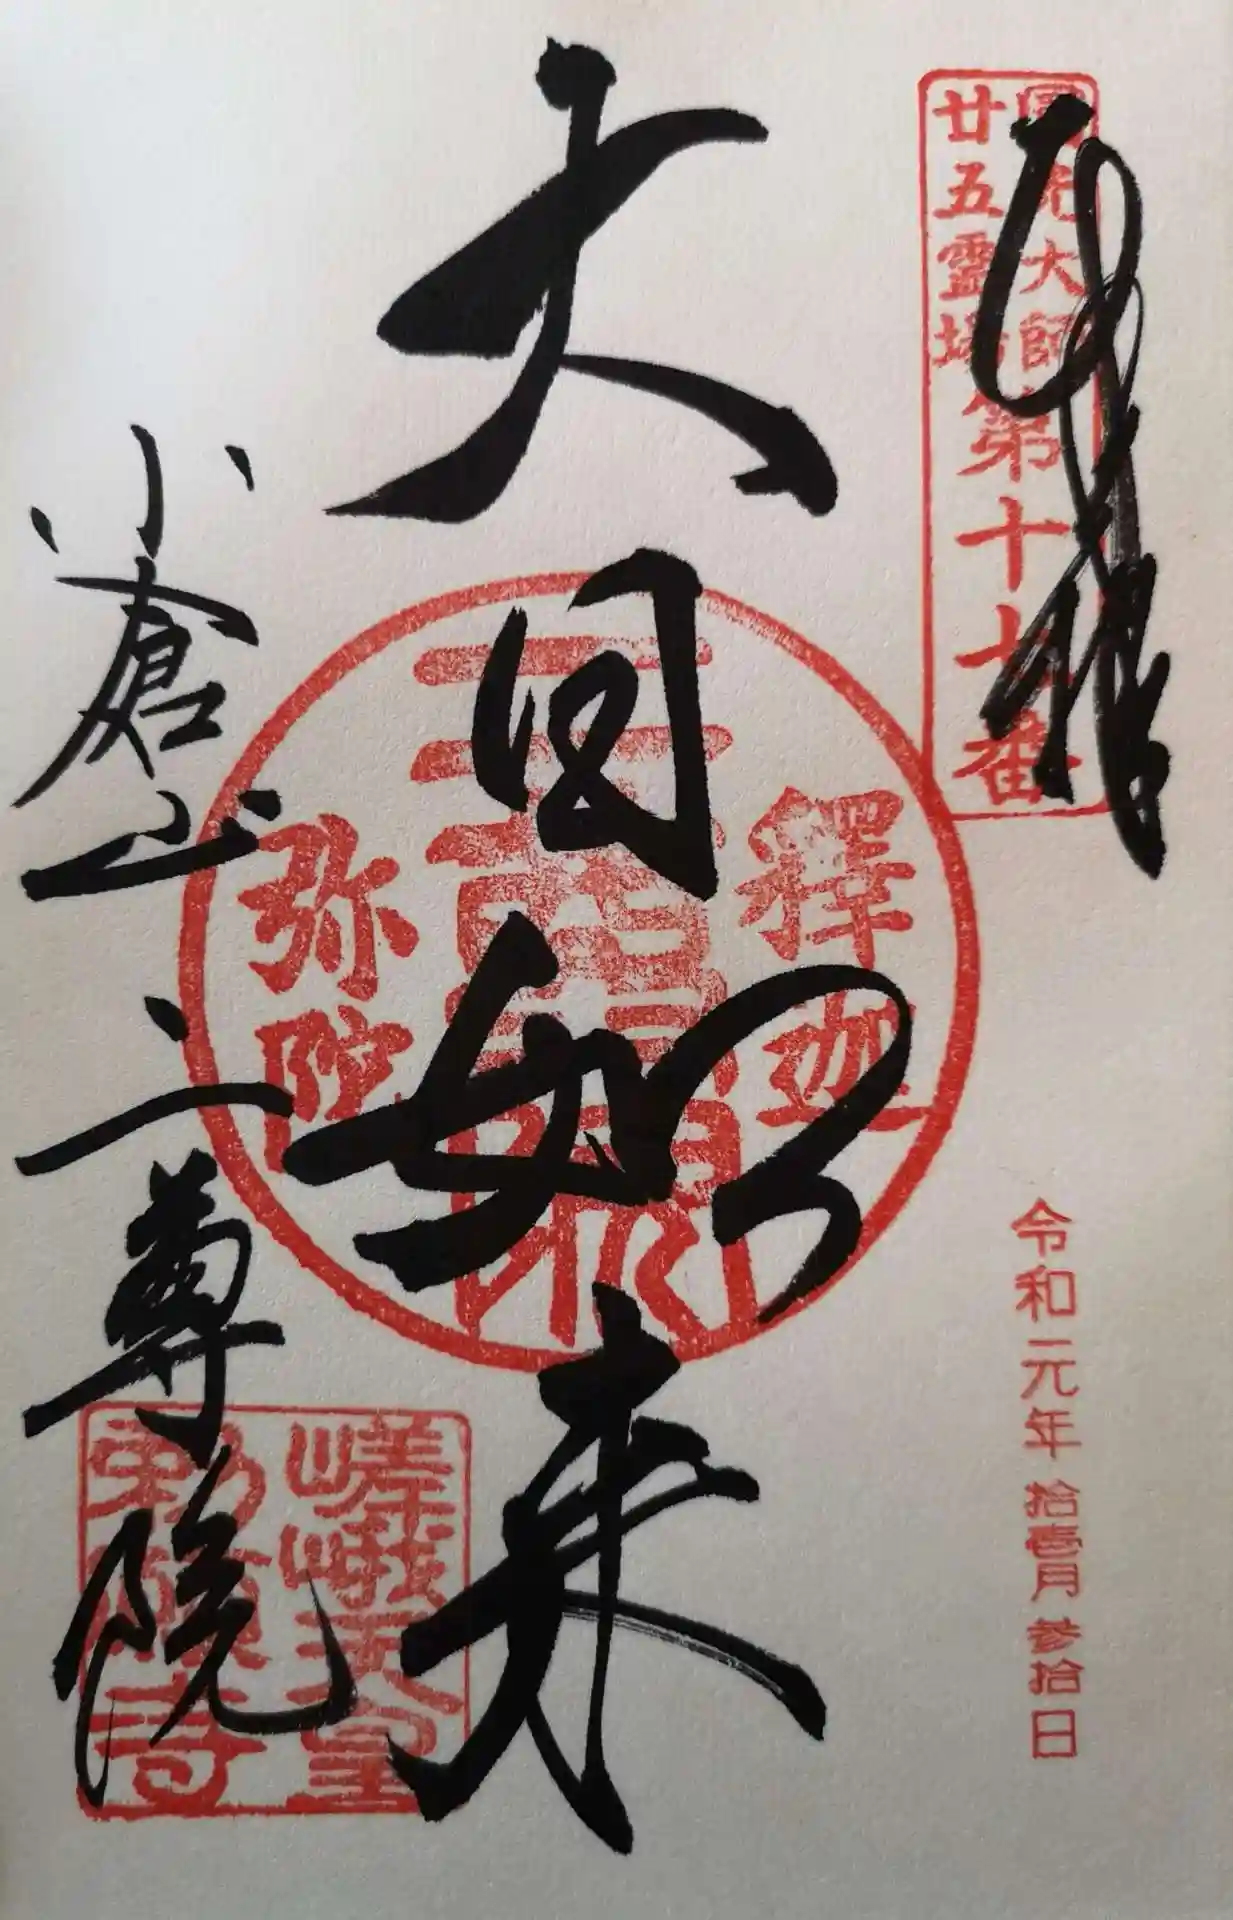 奉拝
圓光大師
廿五靈場
第十七番
令和元年 拾壹月 参拾日
大日如来
釋迦
弥陀
小倉山
二尊院
嵯峨天皇
勅願寺